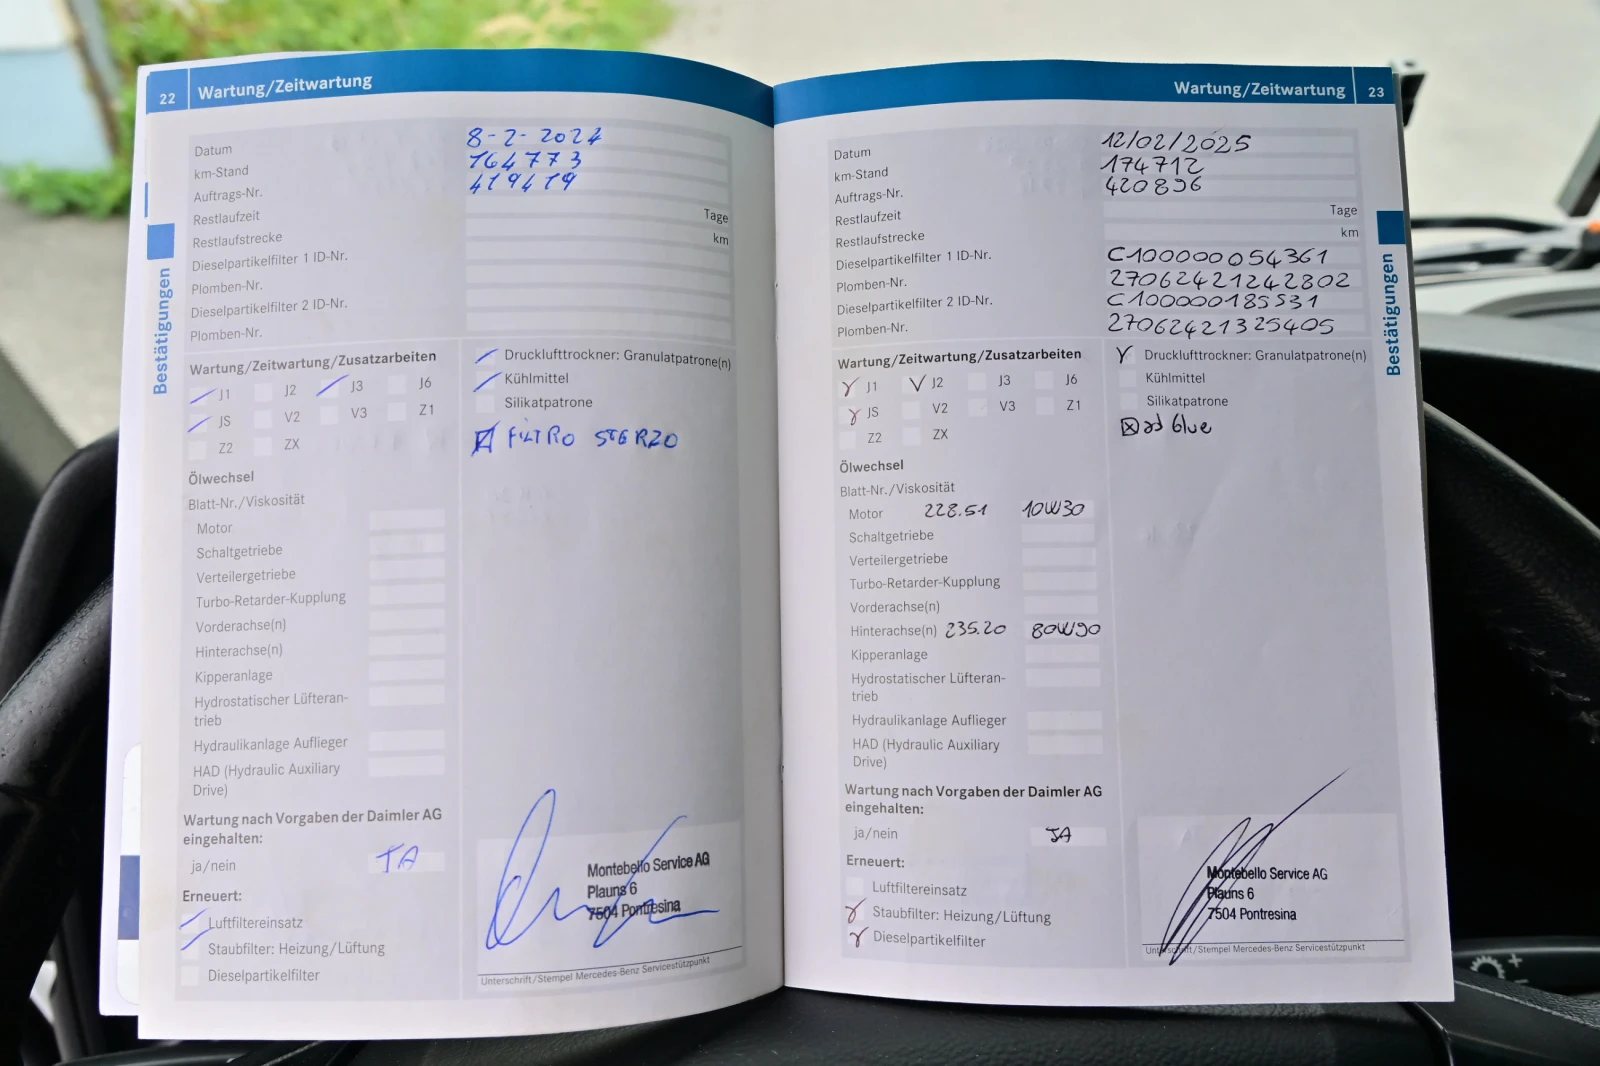 22 Wartung/Zeitwartung
Datum 8-2-2024
km-Stand 164773
Auftrags-Nr. 419419
Restlaufzeit Tage
Restlaufstrecke km
Dieselpartikelfilter 1 ID-Nr.
Plomben-Nr.
Dieselpartikelfilter 2 ID-Nr.
Plomben-Nr.
Bestätigungen
Wartung/Zeitwartung/Zusatzarbeiten
J1 J2 J3 J6
JS V2 V3 Z1
Z2 ZX
Drucklufttrockner: Granulatpatrone(n)
Kühlmittel
Silikatpatrone
FILTRO STERZO
Ölwechsel
Blatt-Nr./Viskosität
Motor
Schaltgetriebe
Verteilergetriebe
Turbo-Retarder-Kupplung
Vorderachse(n)
Hinterachse(n)
Kipperanlage
Hydrostatischer Lüfteran-
trieb
Hydraulikanlage Auflieger
HAD (Hydraulic Auxiliary
Drive)
Wartung nach Vorgaben der Daimler AG
eingehalten:
ja/nein JA
Erneuert:
Luftfiltereinsatz
Staubfilter: Heizung/Lüftung
Dieselpartikelfilter
Montebello Service AG
Plauns 6
7504 Pontresina
Unterschrift/Stempel Mercedes-Benz Servicestützpunkt
Wartung/Zeitwartung 23
Datum 12/02/2025
km-Stand 174712
Auftrags-Nr. 420896
Restlaufzeit Tage
Restlaufstrecke km
Dieselpartikelfilter 1 ID-Nr. C100000054361
Plomben-Nr. 27062421242802
Dieselpartikelfilter 2 ID-Nr. C100000185531
Plomben-Nr. 27062421325405
Bestätigungen
Wartung/Zeitwartung/Zusatzarbeiten
J1 J2 J3 J6
JS V2 V3 Z1
Z2 ZX
Drucklufttrockner: Granulatpatrone(n)
Kühlmittel
Silikatpatrone
ad blue
Ölwechsel
Blatt-Nr./Viskosität
Motor 228.51 10W30
Schaltgetriebe
Verteilergetriebe
Turbo-Retarder-Kupplung
Vorderachse(n)
Hinterachse(n) 235.20 80W90
Kipperanlage
Hydrostatischer Lüfteran-
trieb
Hydraulikanlage Auflieger
HAD (Hydraulic Auxiliary
Drive)
Wartung nach Vorgaben der Daimler AG
eingehalten:
ja/nein JA
Erneuert:
Luftfiltereinsatz
Staubfilter: Heizung/Lüftung
Dieselpartikelfilter
Montebello Service AG
Plauns 6
7504 Pontresina
Unterschrift/Stempel Mercedes-Benz Servicestützpunkt